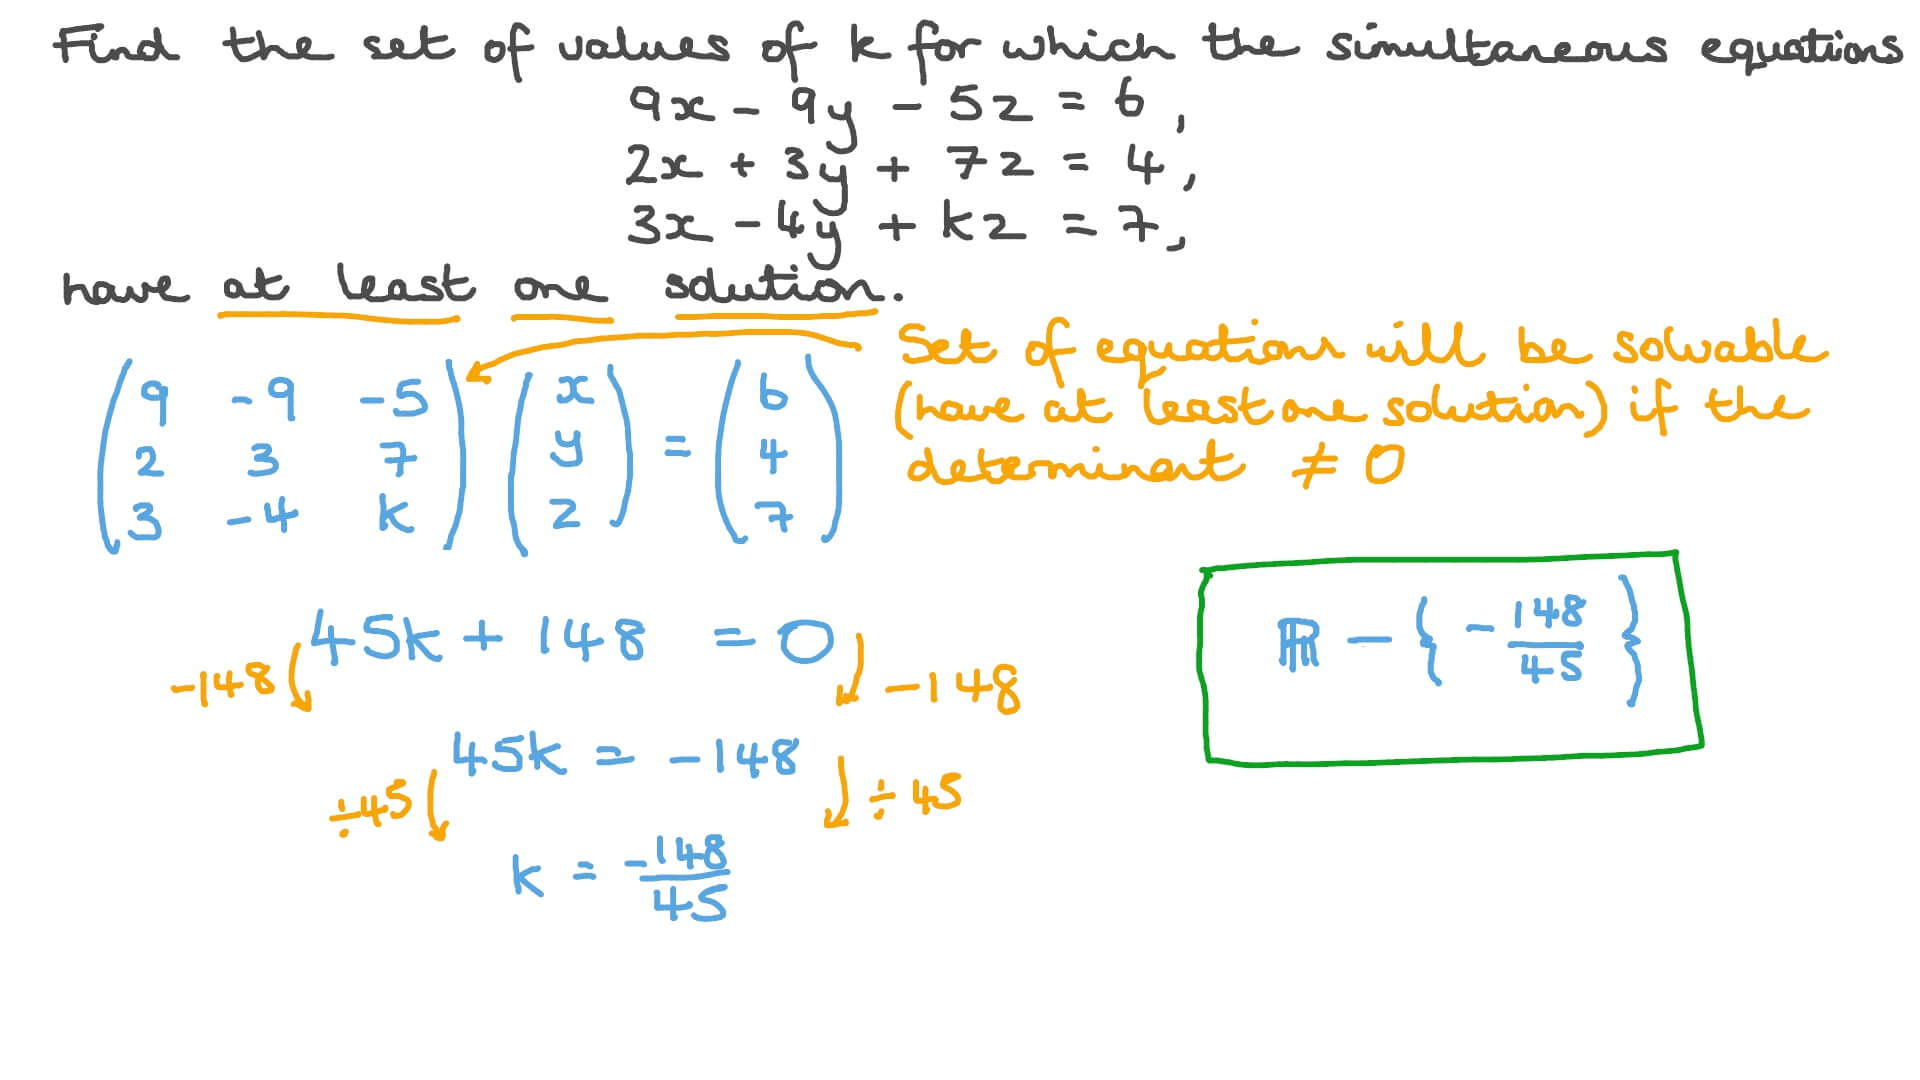 Find the set of values of k for which the simultaneous equations
9x - 9y - 5z = 6,
2x + 3y + 7z = 4,
3x - 4y + kz = 7,
have at least one solution.
Set of equations will be solvable
(have at least one solution) if the
determinant ≠ 0
( 9 -9 -5 ) ( x ) = ( 6 )
( 2 3 7 ) ( y ) ( 4 )
( 3 -4 k ) ( z ) ( 7 )
45k + 148 = 0
-148 -148
45k = -148
÷45 ÷45
k = -148/45
ℝ - { -148/45 }